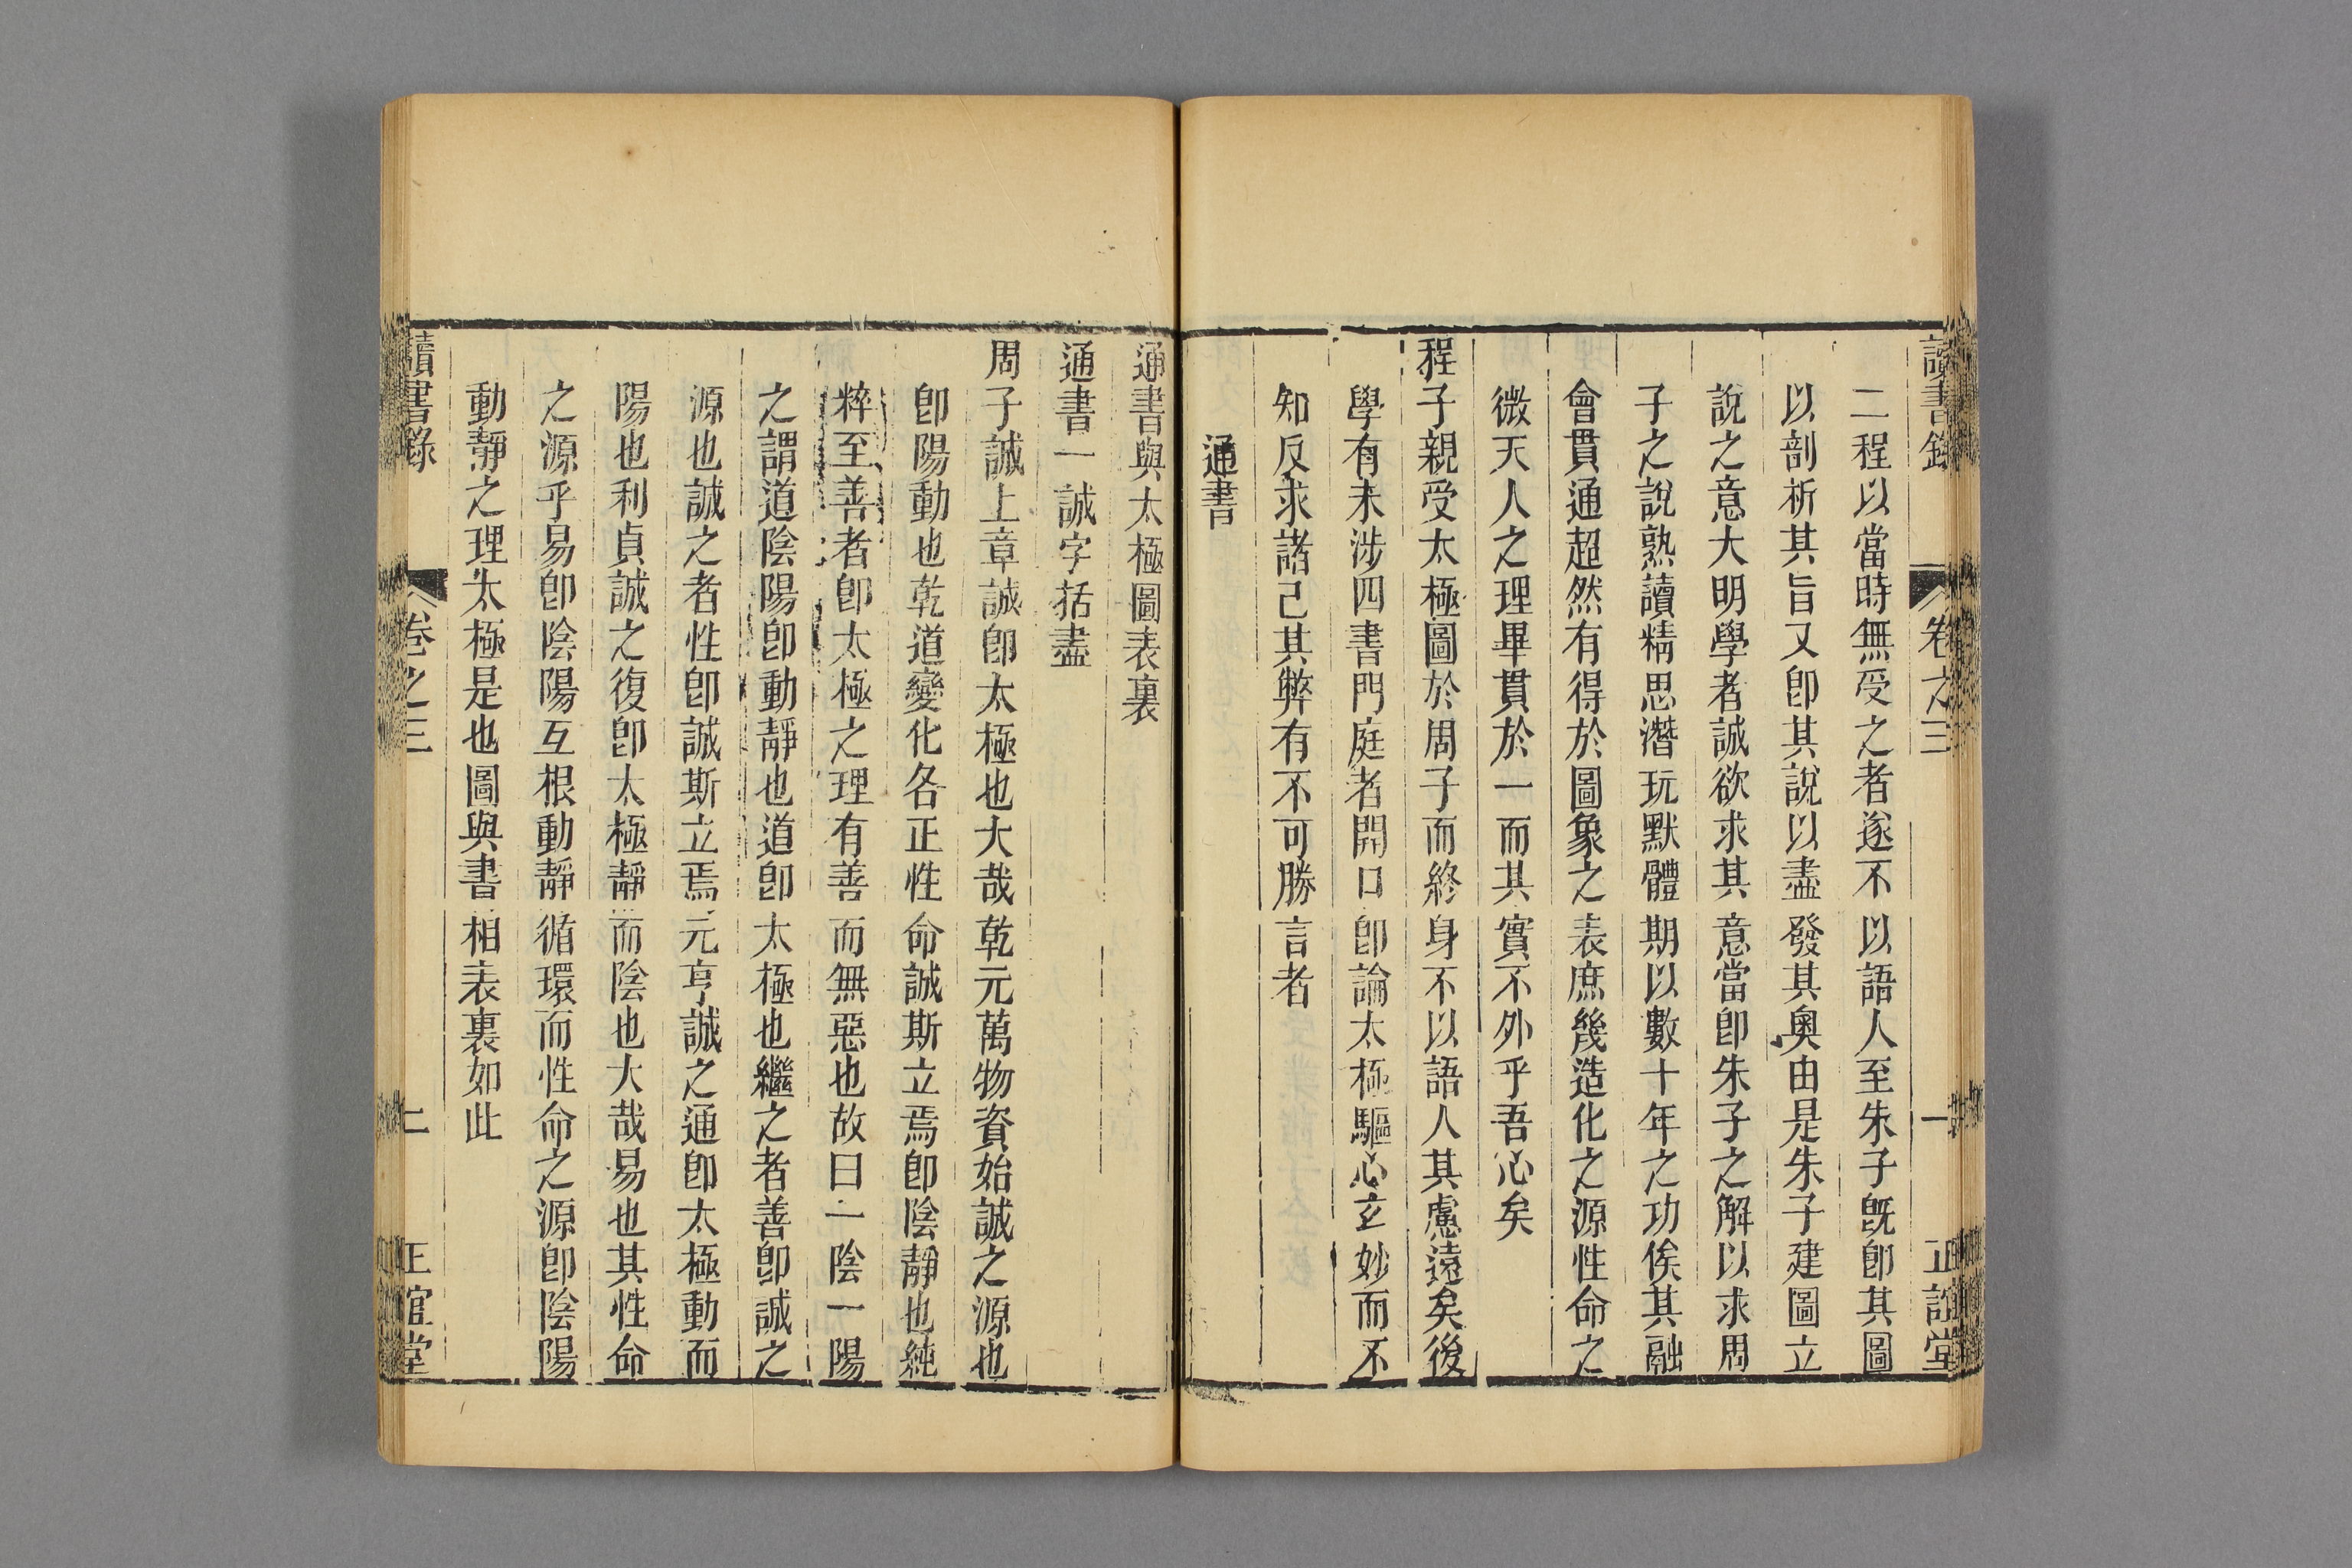 讀書錄 卷之三 一 正誼堂
二程以當時無受之者遂不以語人至朱子旣卽其圖
以剖析其旨又卽其說以盡發其奧由是朱子建圖立
說之意大明學者誠欲求其意當卽朱子之解以求周
子之說熟讀精思潛玩默體期以數十年之功俟其融
會貫通超然有得於圖象之表庶幾造化之源性命之
微天人之理畢貫於一而其實不外乎吾心矣
程子親受太極圖於周子而終身不以語人其慮遠矣後
學有未涉四書門庭者開口卽論太極驅心玄妙而不
知反求諸己其弊有不可勝言者
通書
通書與太極圖表裏
通書一誠字括盡
周子誠上章誠卽太極也大哉乾元萬物資始誠之源也
卽陽動也乾道變化各正性命誠斯立焉卽陰靜也純
粹至善者卽太極之理有善而無惡也故曰一陰一陽
之謂道陰陽卽動靜也道卽太極也繼之者善卽誠之
源也誠之者性卽誠斯立焉元亨誠之通卽太極動而
陽也利貞誠之復卽太極靜而陰也大哉易也其性命
之源乎易卽陰陽互根動靜循環而性命之源卽陰陽
動靜之理太極是也圖與書相表裏如此
讀書錄 卷之三 二 正誼堂